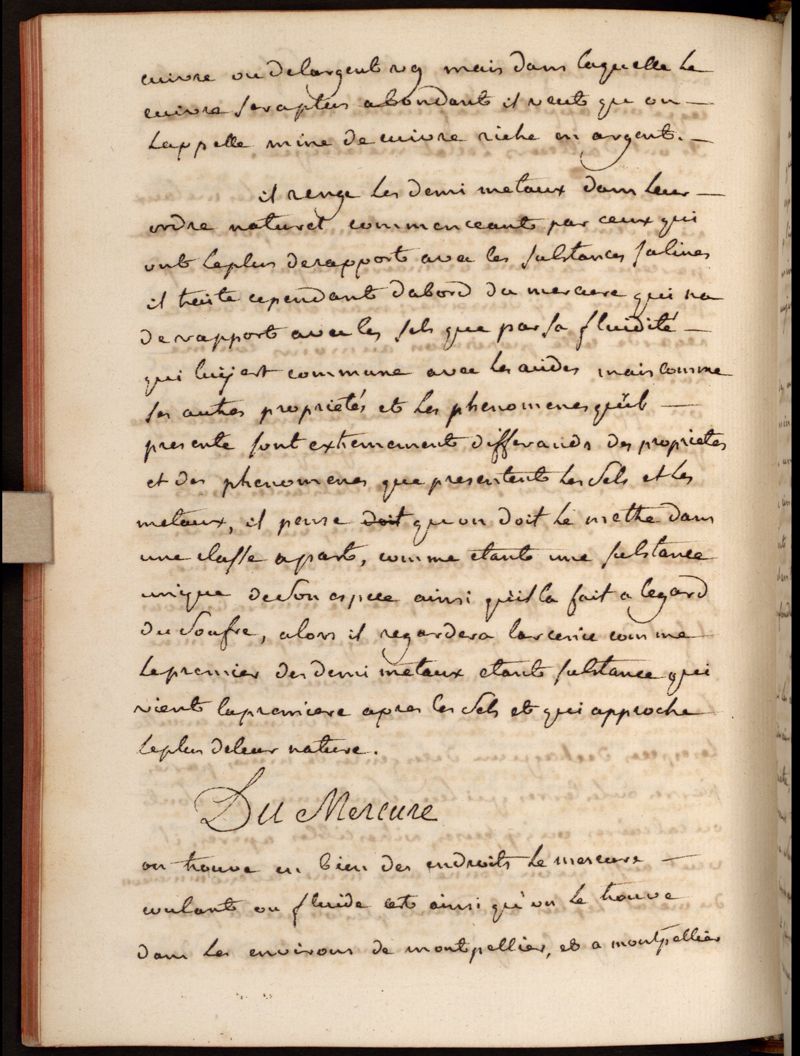 cuivre ou delargent rg mais dans laquelle le
cuivre seraplus abondant il veut qu on —
Lappelle mine de cuivre riche en argent. —
il renge les demi metaux dans leur —
ordre naturel commenceant par ceux qui
ont leplus derapport avec les substances salines
il traite cependant dabord du mercure qui na
de rapport avec les sels que par sa fluidité —
qui luy est commune avec les acides mais comme
ses autres proprietés et les phenomenes quil —
presente sont extremement differands des proprietes
et des phenomenes que presentent les sels et les
metaux, il pense doit qu on doit le mettre dans
une classe apart, comme etant une substance
unique de son espece ainsi quil la fait a legard
du soufre, alors il regardera larcenic comme
lepremier des demi metaux etant substance qui
vient lapremiere apres les sels et qui approche
leplus deleur nature.
Du Mercure
on trouve en bien des endroits le mercure —
coulant ou fluide cest ainsi qu'on le trouve
dans les environs de montpellier, et a montpellier